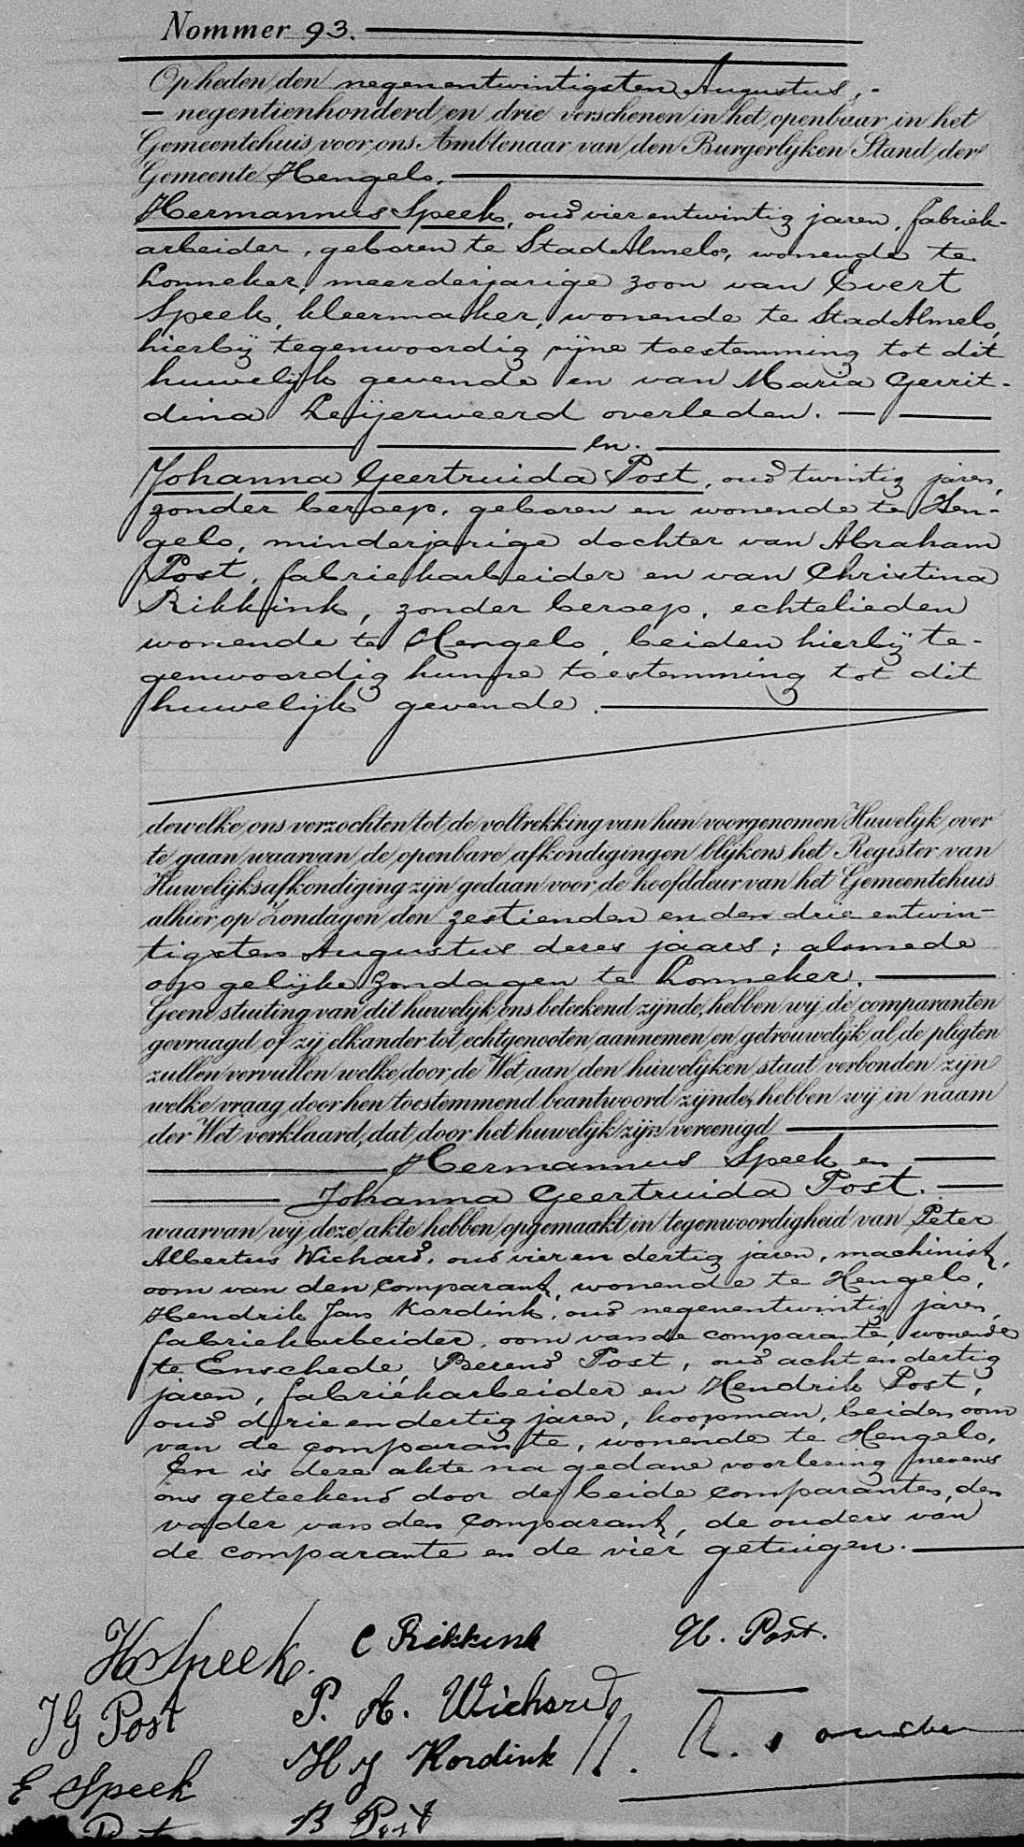 Nommer 93.
Op heden den negenentwintigsten Augustus,
negentienhonderd en drie verschenen in het openbaar in het
Gemeentehuis voor ons Ambtenaar van den Burgerlyken Stand der
Gemeente Hengelo.
Hermannus Speek, oud vierentwintig jaren, fabriek-
arbeider, geboren te Stad Almelo, wonende te
Lonneker, meerderjarige zoon van Evert
Speek, kleermaker, wonende te Stad Almelo,
hierbij tegenwoordig zijne toestemming tot dit
huwelijk gevende en van Maria Gerrit-
dina Leijerweerd overleden.
en
Johanna Geertruida Post, oud twintig jaren,
zonder beroep, geboren en wonende te Hen-
gelo, minderjarige dochter van Abraham
Post, fabriekarbeider en van Christina
Rikkink, zonder beroep, echtelieden
wonende te Hengelo, beiden hierbij te-
genwoordig hunne toestemming tot dit
huwelijk gevende.
dewelke ons verzochten tot de voltrekking van hun voorgenomen Huwelyk over
te gaan waarvan de openbare afkondigingen blijkens het Register van
Huwelijksafkondiging zijn gedaan voor de hoofddeur van het Gemeentehuis
alhier op Zondagen den zestienden en den drie entwin-
tigsten Augustus dezes jaars; alsmede
op gelijke Zondagen te Lonneker.
Geene stuiting van dit huwelijk ons beteekend zijnde, hebben wij de comparanten
gevraagd of zij elkander tot echtgenooten aannemen en getrouwelijk al de pligten
zullen vervullen welke door de Wet aan den huwelijken staat verbonden zijn
welke vraag door hen toestemmend beantwoord zijnde, hebben wij in naam
der Wet verklaard, dat door het huwelijk zijn vereenigd
Hermannus Speek en
Johanna Geertruida Post.
waarvan wij deze akte hebben opgemaakt in tegenwoordigheid van Peter
Albertus Wichard, oud vier en dertig jaren, machinist,
oom van den comparant, wonende te Hengelo,
Hendrik Jan Kordink, oud negenentwintig jaren,
fabriekarbeider, oom van de comparante, wonende
te Enschede, Berend Post, oud acht en dertig
jaren, fabriekarbeider en Hendrik Post,
oud drie en dertig jaren, koopman, beiden oom
van de comparante, wonende te Hengelo,
En is deze akte na gedane voorlezing nevens
ons geteekend door de beide comparanten, den
vader van den comparant, de ouders van
de comparante en de vier getuigen.
H Speek. C Rikkink H. Post.
JG Post P. A. Wichard
E Speek H J Kordink
Post B Post